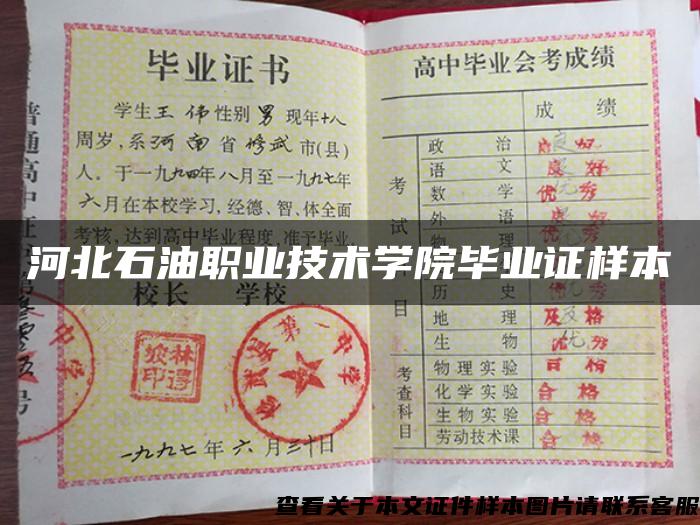 毕业证书
学生王伟性别男现年十八
周岁，系河南省修武市(县)
人。于一九九四年八月至一九九七年
六月在本校学习，经德、智、体全面
考核，达到高中毕业程度，准予毕业
校长 学校
修武县第一中学
一九九七年六月三十日
普通高中证
号
高中毕业会考成绩
成绩
考试
目
政治 良好
语文 良好
数学 优秀
外语
历史 优秀
地理 及格
生物 优秀
考查科目
物理实验 合格
化学实验 合格
生物实验 合格
劳动技术课 合格
河北石油职业技术学院毕业证样本
查看关于本文证件样本图片请联系客服